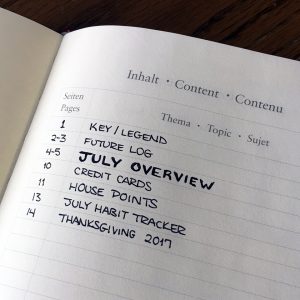 Inhalt · Content · Contenu
Seiten
Pages
Thema · Topic · Sujet
1 KEY/LEGEND
2-3 FUTURE LOG
4-5 JULY OVERVIEW
10 CREDIT CARDS
11 HOUSE POINTS
13 JULY HABIT TRACKER
14 THANKSGIVING 2017